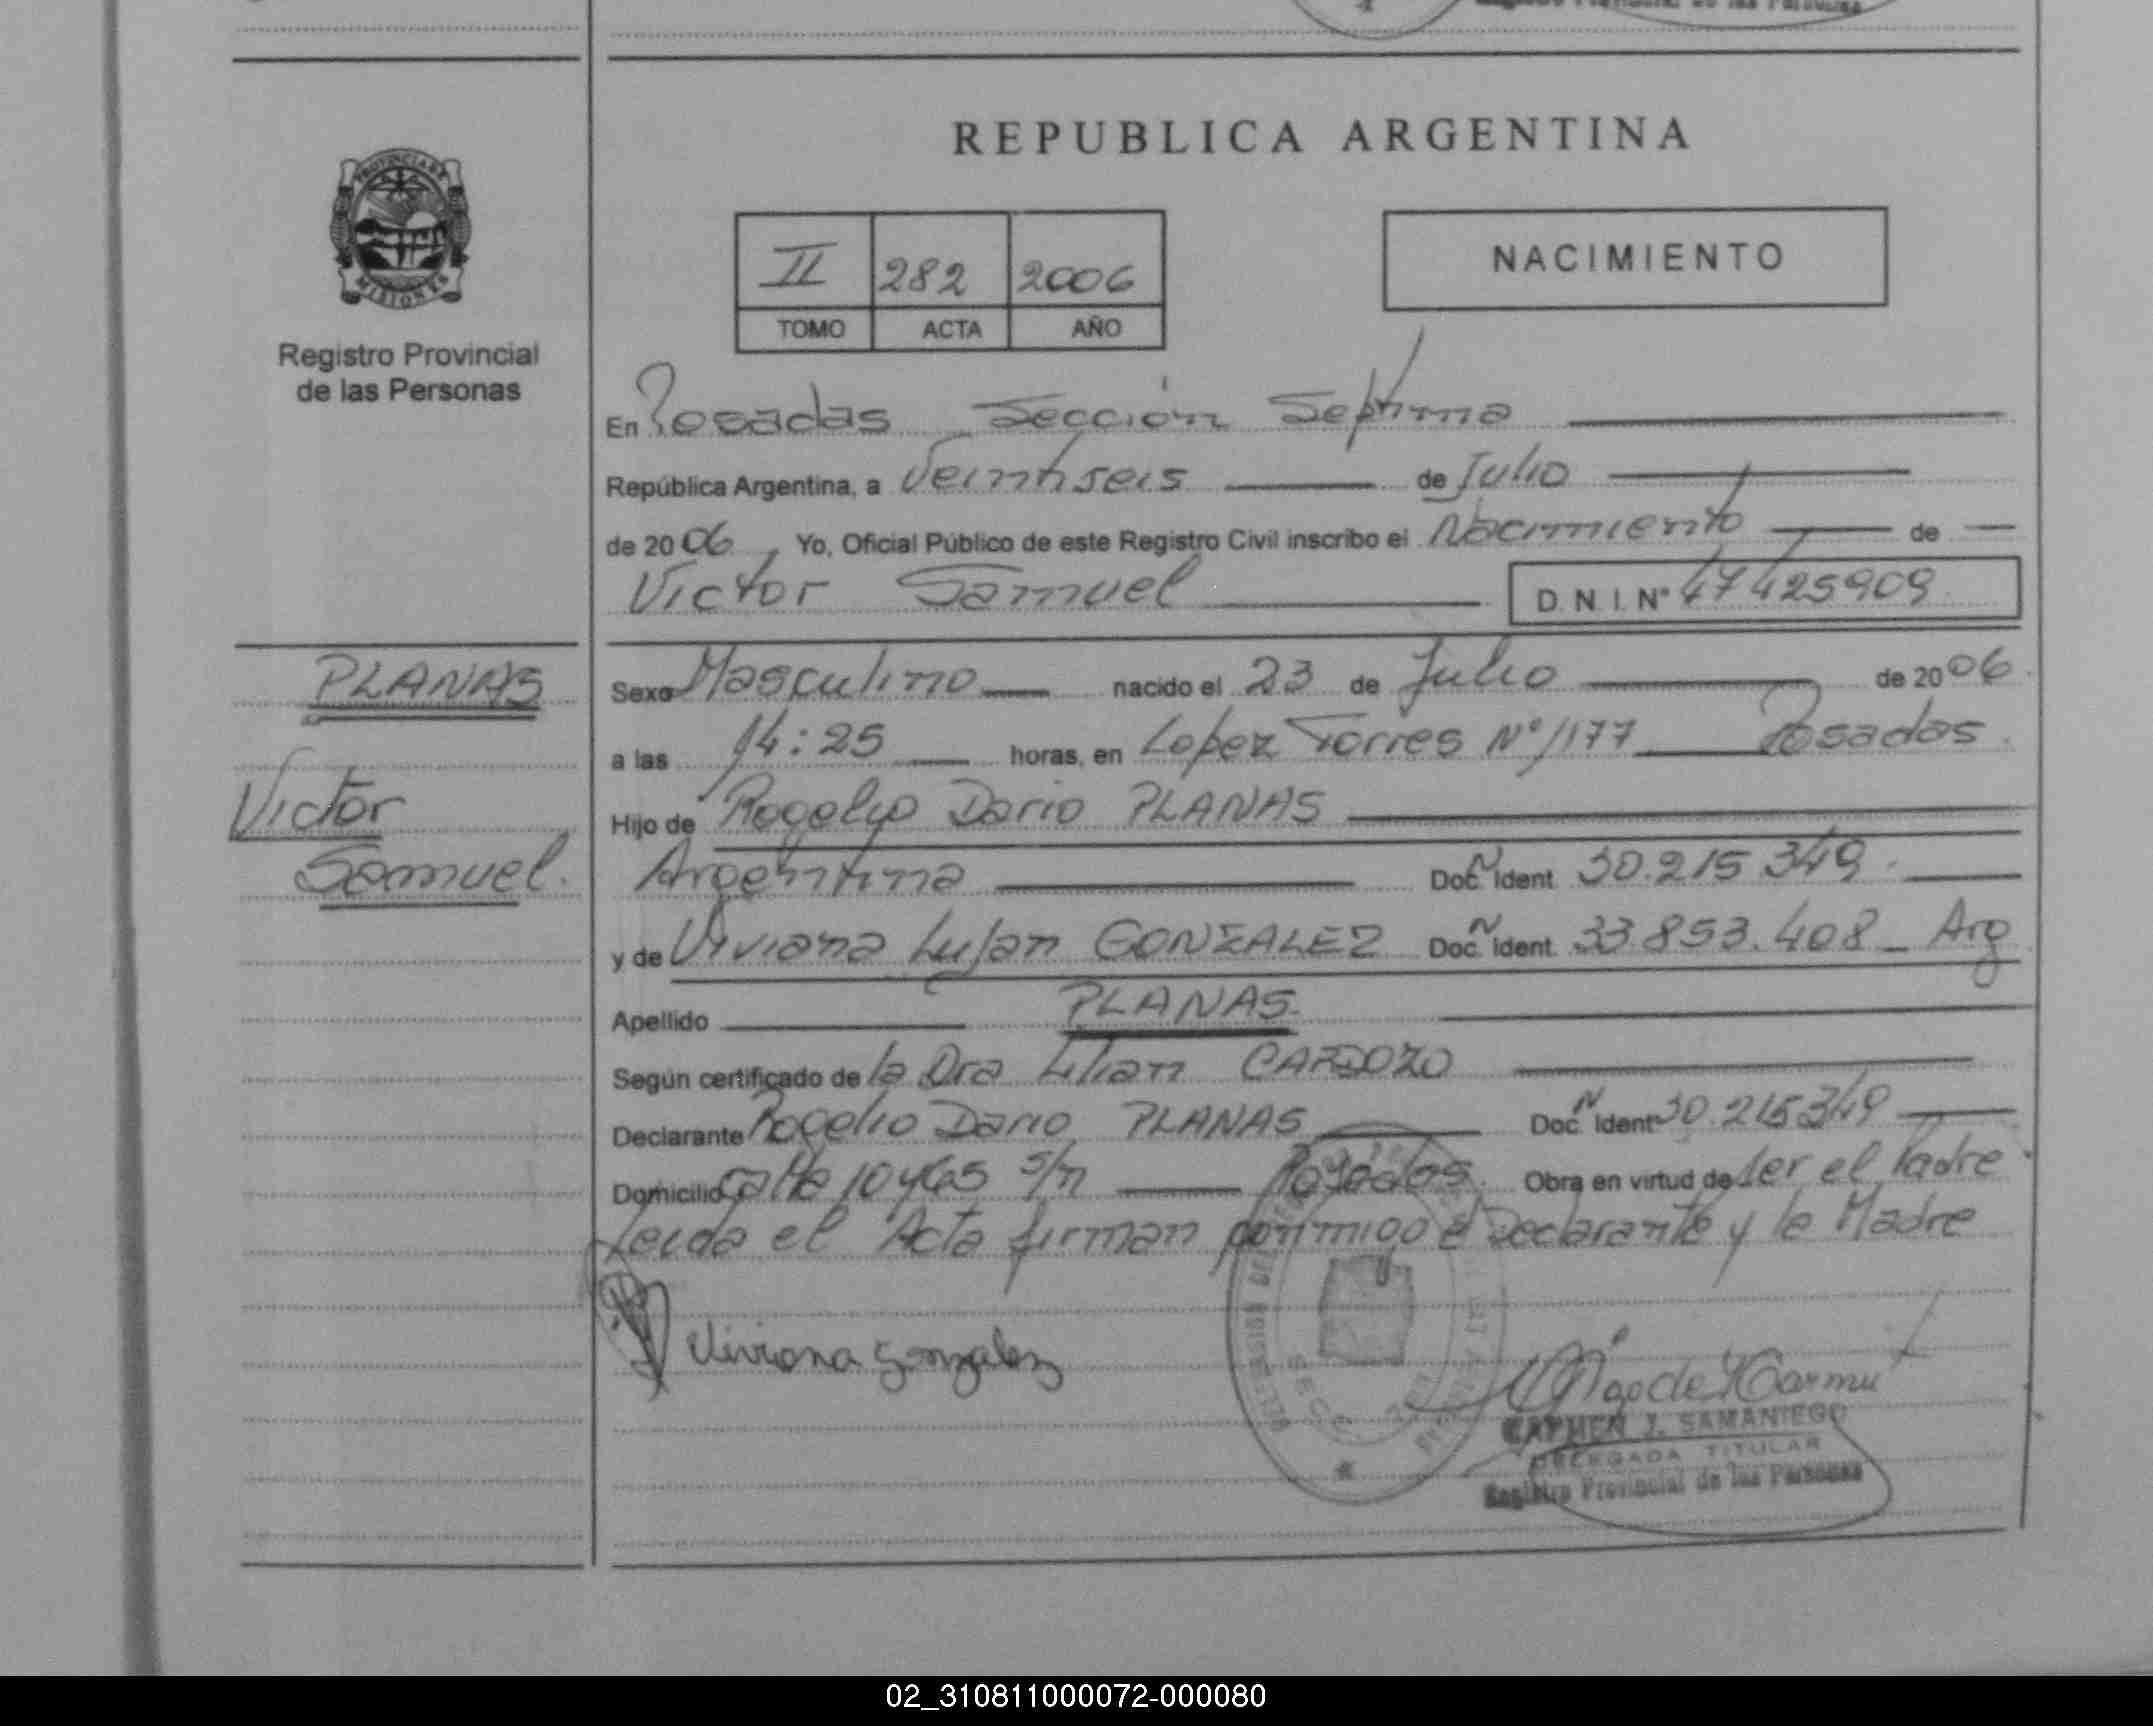 REPUBLICA ARGENTINA
PROVINCIA DE
MISIONES
Registro Provincial
de las Personas
II 282 2006
TOMO ACTA AÑO
NACIMIENTO
En Posadas Sección Septima
República Argentina, a Veintiseis de Julio
de 2006, Yo, Oficial Público de este Registro Civil inscribo el Nacimiento de
Victor Samuel D.N.I. N° 47425909
PLANAS
Victor
Samuel.
Sexo Masculino nacido el 23 de Julio de 2006
a las 14:25 horas, en Lopez Torres N° 1177 Posadas
Hijo de Rogelio Dario PLANAS
Argentina Doc. N Ident 30.215 349
y de Viviana Lujan GONZALEZ Doc. N Ident. 33 853.408 Arg
Apellido PLANAS
Según certificado de la Dra Lilian CARDOZO
Declarante Rogelio Dario PLANAS Doc. N Ident 30.215349
Domicilio Calle 10 y 165 s/n Posadas. Obra en virtud de ser el Padre
Leida el Acta firman conmigo el Declarante y la Madre
Viviana Gonzalez
CARMEN J. SAMANIEGO
DELEGADA TITULAR
Registro Provincial de las Personas
02_310811000072-000080